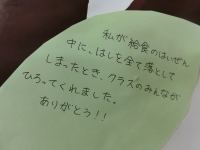 私が給食のはいぜん
中に、はしを全て落として
しまったとき、クラスのみんなが
ひろってくれました。
ありがとう!!